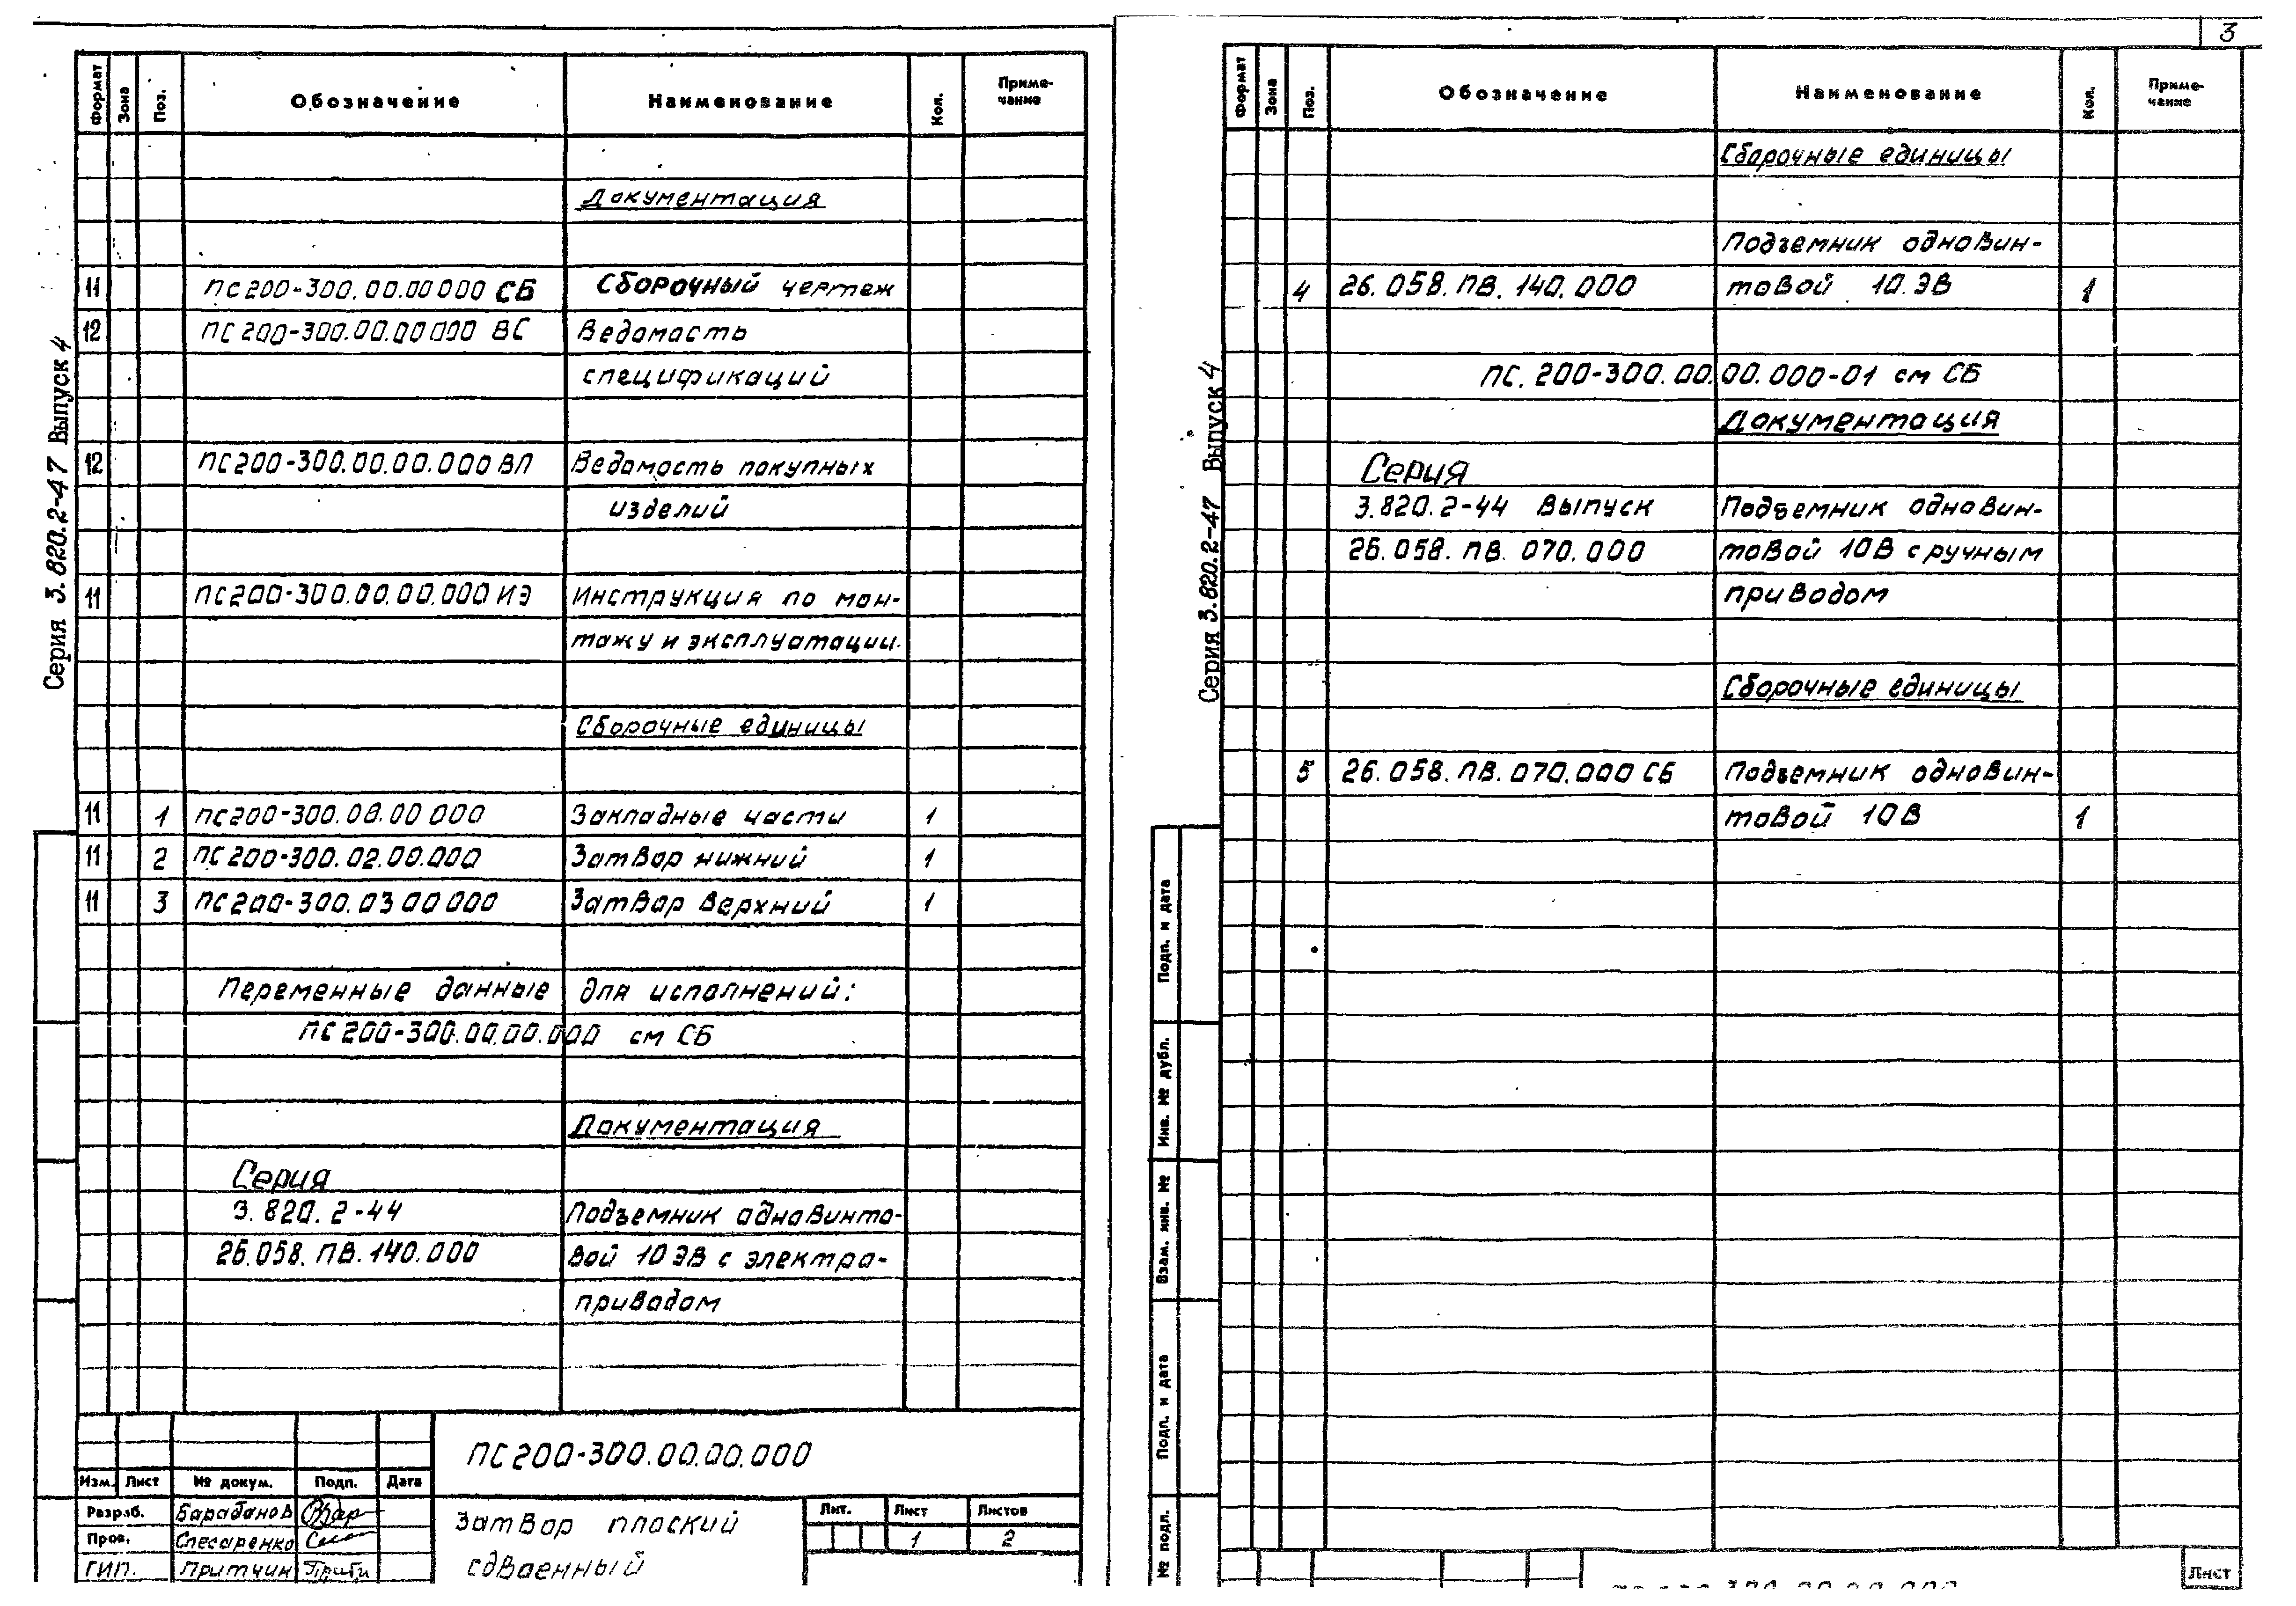 Формат
Зона
Поз.
Обозначение
Наименование
Кол.
Приме-
чание
Документация
11 ПС200-300.00.00000 СБ Сборочный чертеж
12 ПС200-300.00.00000 ВС Ведомость
спецификаций
12 ПС200-300.00.00.000 ВП Ведомость покупных
изделий
11 ПС200-300.00.00.000 ИЭ Инструкция по мон-
тажу и эксплуатации.
Сборочные единицы
11 1 ПС200-300.08.00 000 Закладные части 1
11 2 ПС200-300.02.00.000 Затвор нижний 1
11 3 ПС200-300.03 00 000 Затвор верхний 1
Переменные данные для исполнений:
ПС200-300.00.00.000 см СБ
Документация
Серия
3.820.2-44 Подъемник одновинто-
26.058.ПВ.140.000 вой 10ЭВ с электро-
приводом
Серия 3.820.2-47 Выпуск 4
ПС200-300.00.00.000
Изм. Лист № докум. Подп. Дата
Разраб. Барабанов
Пров. Слесаренко
ГИП. Притчин
Затвор плоский
сдвоенный
Лит. Лист Листов
1 2
3
Формат
Зона
Поз.
Обозначение
Наименование
Кол.
Приме-
чание
Сборочные единицы
Подъемник одновин-
4 26.058.ПВ.140.000 товой 10.ЭВ 1
ПС.200-300.00.00.000-01 см СБ
Документация
Серия
3.820.2-44 Выпуск Подъемник одновин-
26.058.ПВ.070.000 товой 10В с ручным
приводом
Сборочные единицы
5 26.058.ПВ.070.000 СБ Подъемник одновин-
товой 10В 1
Серия 3.820.2-47 Выпуск 4
Подп. и дата
Инв. № дубл.
Взам. инв. №
Подп. и дата
№ подл.
Лист